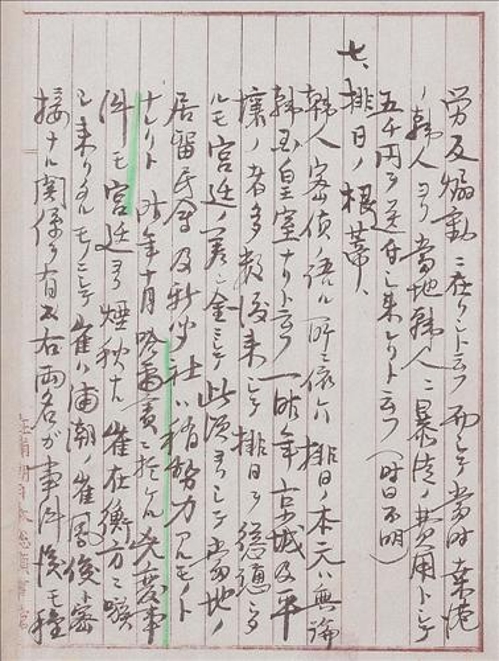 反煽動ニ在リシト云フ而シテ当時桑港
ノ韓人ヨリ当地韓人ニ暴徒ノ費用トシテ
五千円ヲ送付シ来レリト云フ(時日不明)
七、排日ノ根蒂、
韓人密偵ノ語ル所ニ依レハ排日ノ本元ハ無論
韓国皇室ナリト云フ一昨年京城及平
壌ノ者多数渡来シテ排日ヲ慫慂シタ
ルモ宮廷ノ差金ニシテ此頃ヨリシテ当地ノ
居留民会及新聞社ハ稍努力アルモノト
ナレリト昨年十月哈爾賓ニ於ケル兇変事
件モ宮廷ヨリ煙秋ナル崔在衡方ニ嗾
シ来リタルモノニシテ崔ハ浦潮ノ崔鳳俊ト密
接ナル関係ヲ有ス右両名ガ事件後モ種